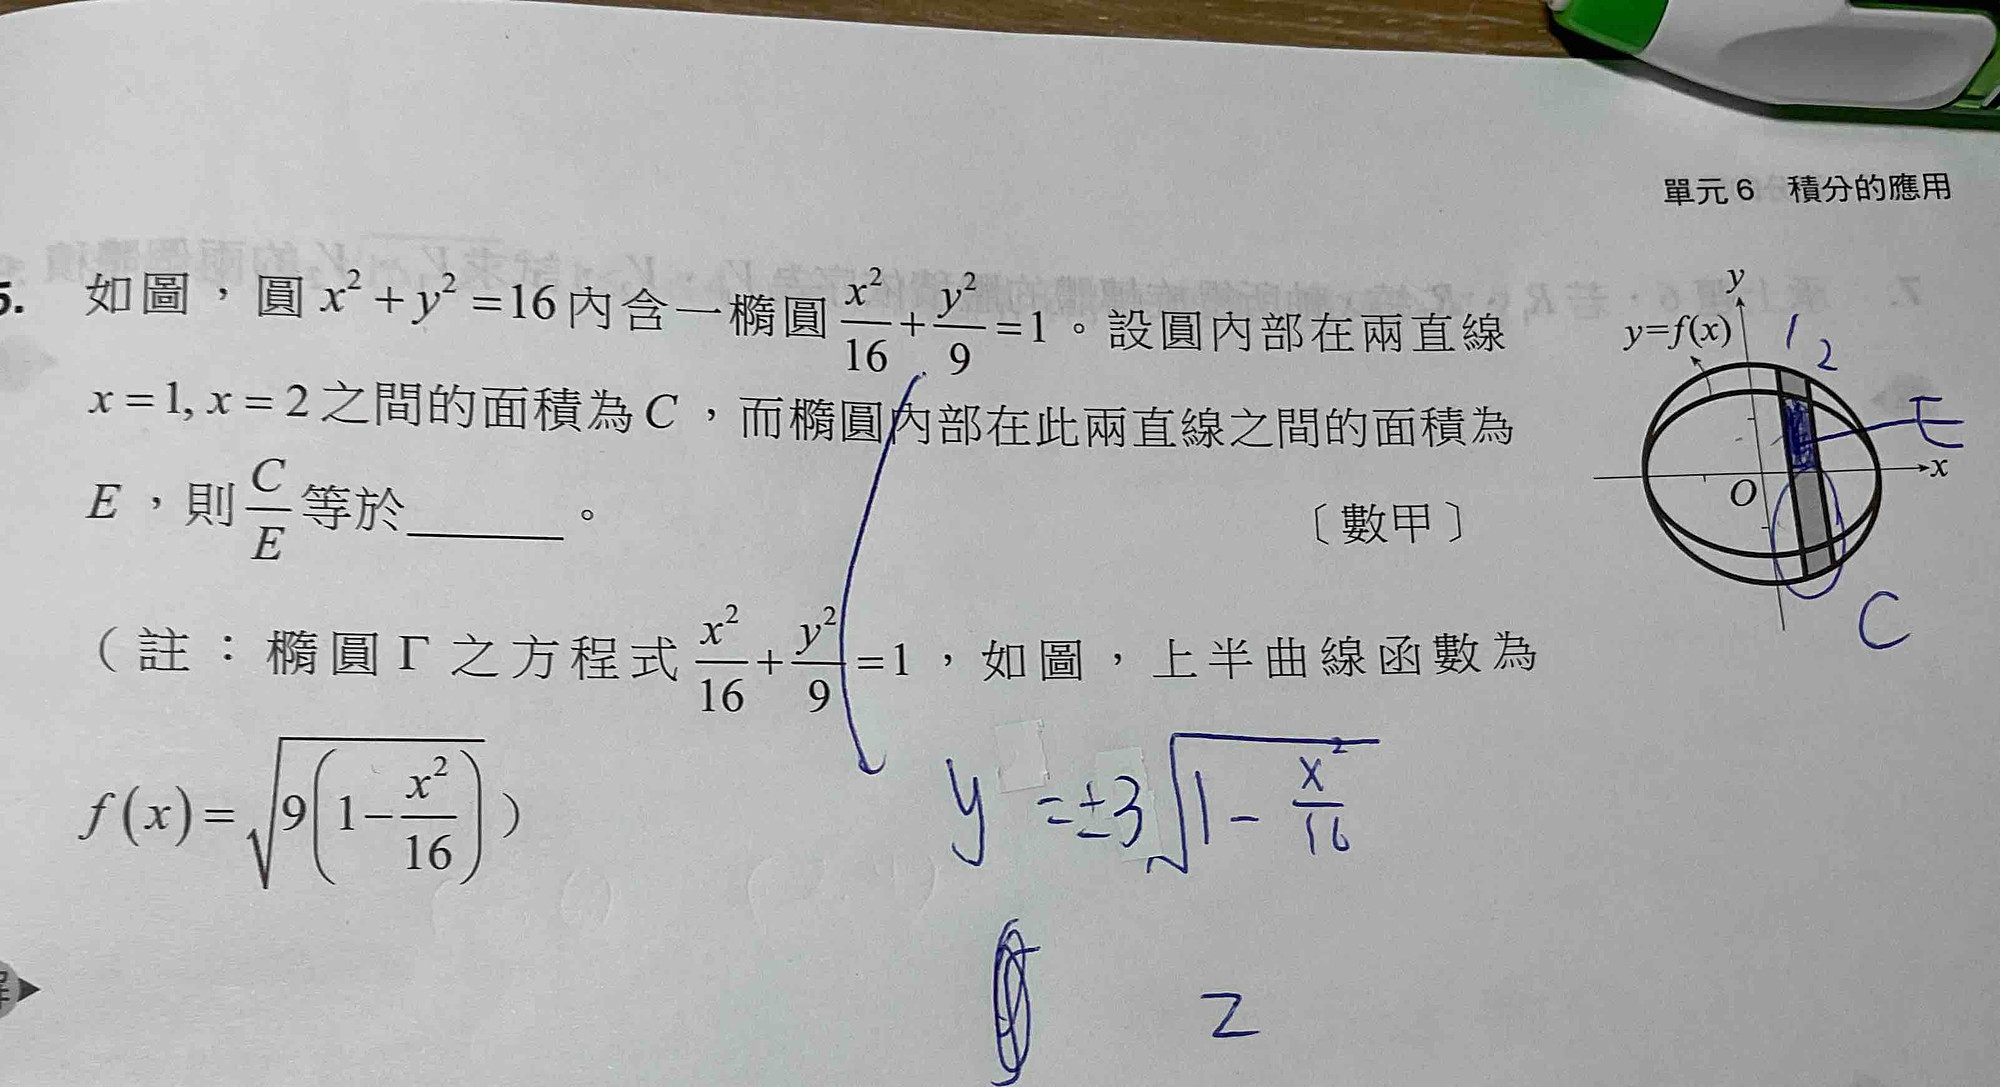 單元 6 積分的應用
5. 如圖，圓 x² + y² = 16 內含一橢圓 x²/16 + y²/9 = 1。設圓內部在兩直線
x = 1, x = 2 之間的面積為 C，而橢圓內部在此兩直線之間的面積為
E，則 C/E 等於______。 〔數甲〕
（註：橢圓 Γ 之方程式 x²/16 + y²/9 = 1，如圖，上半曲線函數為
f(x) = √(9(1 − x²/16))）
y
y=f(x)
1 2
E
x
O
C
y = ±3√(1 − x²/16)
2
解